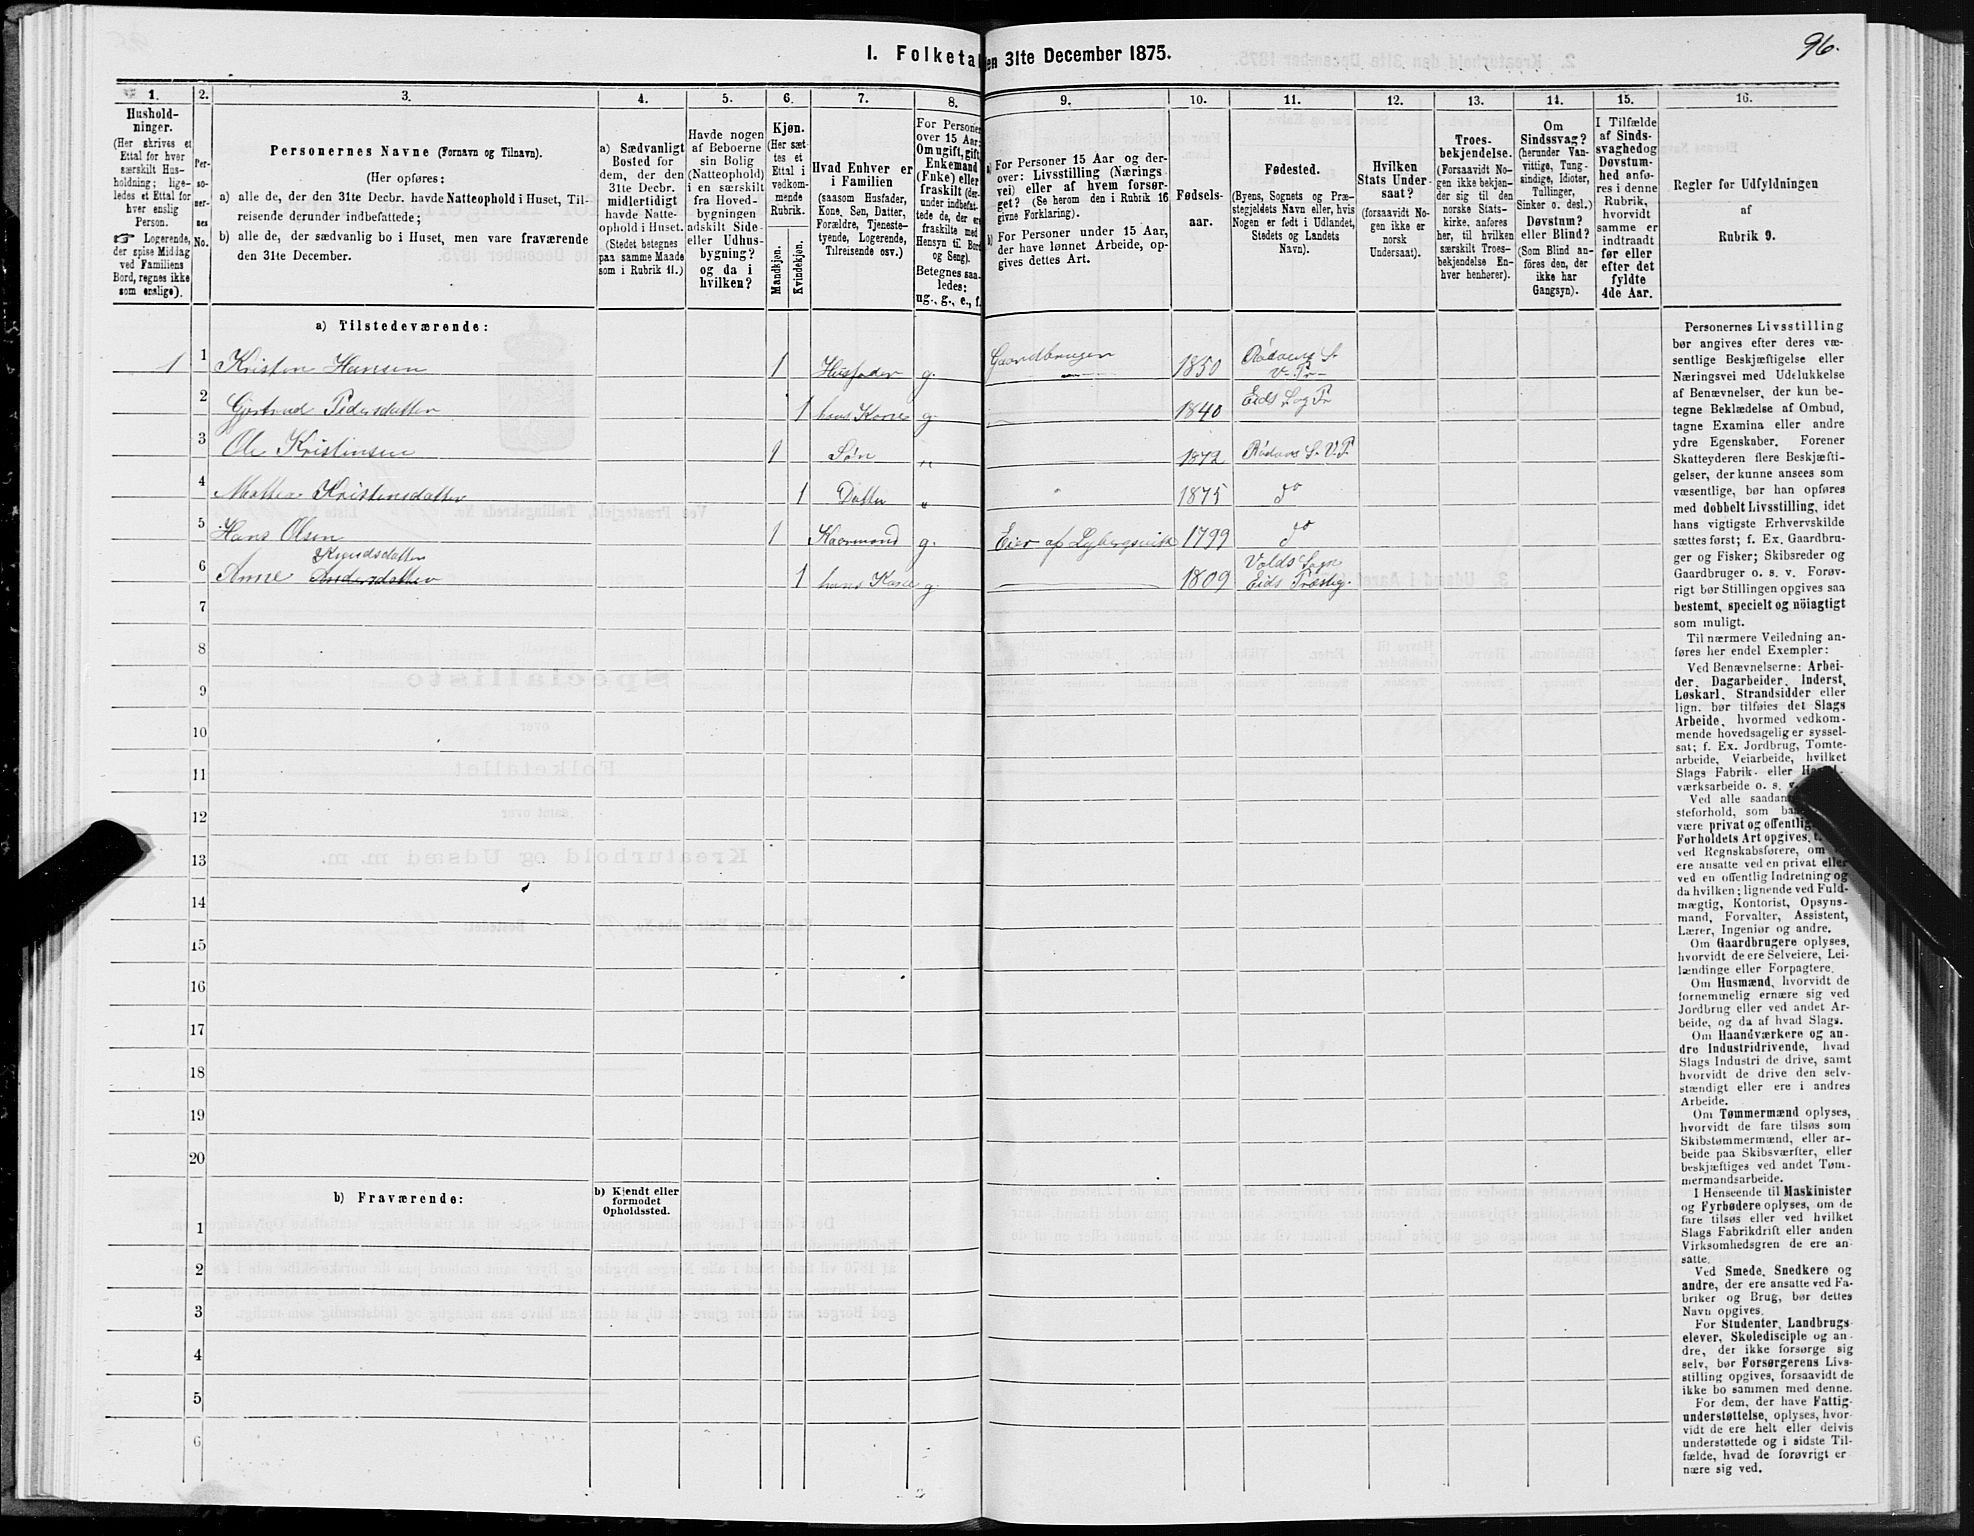 96.
I. Folketal den 31te December 1875.
1.
Hushold-
ninger.
(Her skrives et
Ettal for hver
særskilt Hus-
holdning; lige-
ledes et Ettal for
hver enslig
Person.
☞ Logerende,
der spise Middag
ved Familiens
Bord, regnes ikke
som enslige).
2.
Per-
so-
ner-
nes
No.
3.
Personernes Navne (Fornavn og Tilnavn).
(Her opføres:
a) alle de, der den 31te Decbr. havde Natteophold i Huset, Til-
reisende derunder indbefattede;
b) alle de, der sædvanlig bo i Huset, men vare fraværende
den 31te December.
4.
a) Sædvanligt
Bosted for
dem, der den
31te Decbr.
midlertidigt
havde Natte-
ophold i Huset.
(Stedet betegnes
paa samme Maade
som i Rubrik 11.)
5.
Havde nogen
af Beboerne
sin Bolig
(Natteophold)
i en særskilt
fra Hoved-
bygningen
adskilt Side-
eller Udhus-
bygning?
og da i
hvilken?
6.
Kjøn.
(Her sæt-
tes et
Ettal i
vedkom-
mende
Rubrik.
Mandkjøn.
Kvindekjøn.
7.
Hvad Enhver er
i Familien
(saasom Husfader,
Kone, Søn, Datter,
Forældre, Tjeneste-
tyende, Logerende,
Tilreisende osv.)
8.
For Personer
over 15 Aar:
Om ugift, gift,
Enkemand
(Enke) eller
fraskilt (der-
under indbefat-
tede de, der ere
fraskilte med
Hensyn til Bord
og Seng).
Betegnes saa-
ledes:
ug., g., e., f.
9.
a) For Personer 15 Aar og der-
over: Livsstilling (Nærings-
vei) eller af hvem forsør-
get? (Se herom den i Rubrik 16
givne Forklaring).
b) For Personer under 15 Aar,
der have lønnet Arbeide, op-
gives dettes Art.
10.
Fødsels-
aar.
11.
Fødested.
(Byens, Sognets og Præ-
stegjeldets Navn eller, hvis
Nogen er født i Udlandet,
Stedets og Landets
Navn).
12.
Hvilken
Stats Under-
saat?
(forsaavidt No-
gen ikke er
norsk
Undersaat).
13.
Troes-
bekjendelse.
(Forsaavidt No-
gen ikke bekjen-
der sig til den
norske Stats-
kirke, anføres
her, til hvilken
særskilt Troes-
bekjendelse En-
hver henhører).
14.
Om
Sindssvag?
(herunder Van-
vittige, Tung-
sindige, Idioter,
Tullinger,
Sinker o. desl.)
Døvstum?
eller Blind?
(Som Blind an-
føres den, der
ikke har
Gangsyn).
15.
I Tilfælde
af Sinds-
svaghed og
Døvstum-
hed anfø-
res i denne
Rubrik,
hvorvidt
samme er
indtraadt
før eller
efter det
fyldte
4de Aar.
16.
Regler for Udfyldningen
af
Rubrik 9.
a) Tilstedeværende:
1 1 Kristen Hansen 1 Husfader g. Gaardbruger 1850 Rödvens S. V. Pr
2 Gjertrud Pedersdatter 1 hans Kone g. 1840 Eids Sog Pr
3 Ole Kristensen 1 Søn „ 1872 Rödvens S. V. P.
4 Mathea Kristensdatter 1 Datter „ „ 1875 do
5 Hans Olsen 1 Kaarmand g. Eier af Lybergsvik 1799 do
6 Anne Andersdatter Knudsdatter 1 hans Kone g. 1809 Volds Sogn Eids Præsteg.
7
8
9
10
11
12
13
14
15
16
17
18
19
20
b) Fraværende:
b) Kjendt eller
formodet
Opholdssted.
1
2
3
4
5
6
Personernes Livsstilling
bør angives efter deres væ-
sentlige Beskjæftigelse eller
Næringsvei med Udelukkelse
af Benævnelser, der kun be-
tegne Beklædelse af Ombud,
tagne Examina eller andre
ydre Egenskaber. Forener
Skatteyderen flere Beskjæfti-
gelser, der kunne ansees som
væsentlige, bør han opføres
med dobbelt Livsstilling, idet
hans vigtigste Erhvervskilde
sættes først; f. Ex. Gaardbru-
ger og Fisker; Skibsreder og
Gaardbruger o. s. v. Forøv-
rigt bør Stillingen opgives saa
bestemt, specielt og nöiagtigt
som muligt.
Til nærmere Veiledning an-
føres her endel Exempler:
Ved Benævnelserne: Arbei-
der, Dagarbeider, Inderst,
Løskarl, Strandsidder eller
lign. bør tilføies det Slags
Arbeide, hvormed vedkom-
mende hovedsagelig er syssel-
sat; f. Ex. Jordbrug, Tomte-
arbeide, Veiarbeide, hvilket
Slags Fabrik- eller
værksarbeide o. s. v.
Ved alle
steforhold, som
være privat og offentlig,
Forholdets Art opgives,
ved Regnskabsførere, om
ere ansatte ved en privat eller
ved en offentlig Indretning og
da hvilken; lignende ved Fuld-
mægtig, Kontorist, Opsyns-
mand, Forvalter, Assistent,
Lærer, Ingeniør og andre.
Om Gaardbrugere oplyses,
hvorvidt de ere Selveiere, Lei-
lændinge eller Forpagtere.
Om Husmænd, hvorvidt de
fornemmelig ernære sig ved
Jordbrug eller ved andet Ar-
beide, og da af hvad Slags.
Om Haandværkere og an-
dre Industridrivende, hvad
Slags Industri de drive, samt
hvorvidt de drive den selv-
stændigt eller ere i andres
Arbeide.
Om Tømmermænd oplyses,
hvorvidt de fare tilsøs som
Skibstømmermænd, eller ar-
beide paa Skibsværfter, eller
beskjæftiges ved andet Tøm-
mermandsarbeide.
I Henseende til Maskinister
og Fyrbødere oplyses, om de
fare tilsøs eller ved hvilket
Slags Fabrikdrift eller anden
Virksomhedsgren de ere an-
satte.
Ved Smede, Snedkere og
andre, der ere ansatte ved Fa-
briker og Brug, bør dettes
Navn opgives.
For Studenter, Landbrugs-
elever, Skoledisciple og an-
dre, der ikke forsørge sig
selv, bør Forsørgerens Livs-
stilling opgives, forsaavidt de
ikke bo sammen med denne.
For dem, der have Fattig-
understøttelse, oplyses, hvor-
vidt de ere helt eller delvis
understøttede og i sidste Til-
fælde, hvad de forøvrigt er-
nære sig ved.